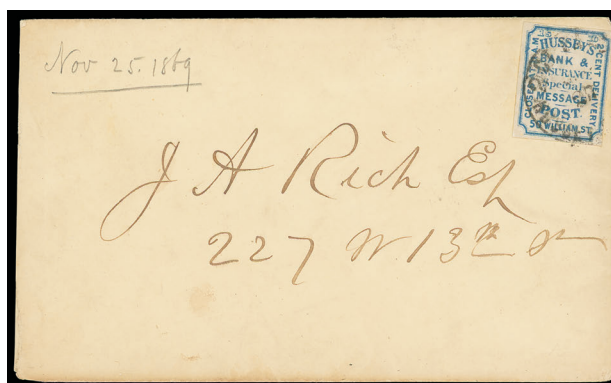 Nov 25. 1869
HUSSEY'S
BANK &
INSURANCE
Special
MESSAGE
POST
50 WILLIAM.ST.
CENT DELIVERY
J A Rich Esq
227 W 13th St